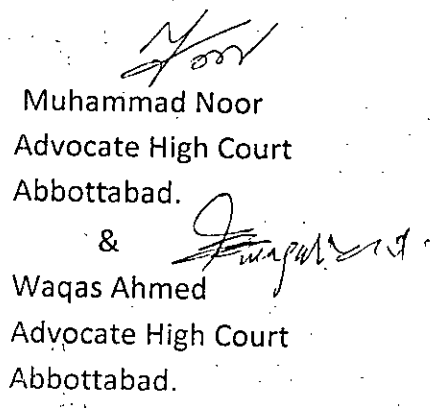 Noor
Muhammad Noor
Advocate High Court
Abbottabad.
&
Waqas Ahmed
Advocate High Court
Abbottabad.